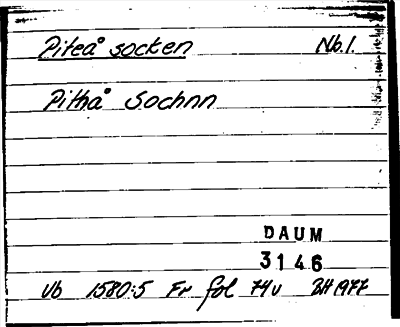 Piteå socken Nb.l.
Pithå Sochnn
DAUM
3146
Vb 1580:5 Fr fol 74v BH 1977